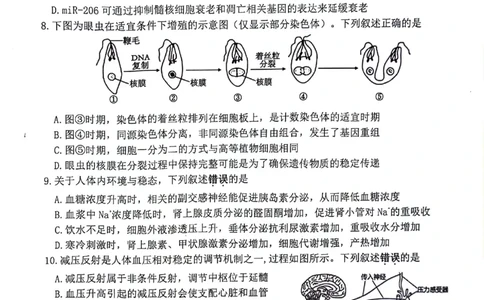 D.miR-206 可通过抑制髓核细胞衰老和凋亡相关基因的表达来延缓衰老
8.下图为眼虫在适宜条件下增殖的示意图（仅显示部分染色体）。下列叙述正确的是
鞭毛
DNA
复制
着丝粒
分裂
核膜
核膜
核膜
①
②
③
④
⑤
A.图③时期，染色体的着丝粒排列在细胞板上，是计数染色体的适宜时期
B.图④时期，同源染色体分离，非同源染色体自由组合，发生了基因重组
C.图⑤时期，细胞一分为二的方式与高等植物细胞相同
D.眼虫的核膜在分裂过程中保持完整可能是为了确保遗传物质的稳定传递
9.关于人体内环境与稳态，下列叙述错误的是
A.血糖浓度升高时，相关的副交感神经能促进胰岛素分泌，从而降低血糖浓度
B.血浆中 Na⁺浓度降低时，肾上腺皮质分泌的醛固酮增加，促进肾小管对 Na⁺的重吸收
C.饮水不足时，细胞外液渗透压上升，垂体分泌抗利尿激素增加，重吸收水分增加
D.寒冷刺激时，肾上腺素、甲状腺激素分泌增加，细胞代谢增强，产热增加
10.减压反射是人体血压相对稳定的调节机制之一，过程如图所示。下列叙述错误的是
A.减压反射属于非条件反射，调节中枢位于延髓
传入神经
压力感受器
B.血压升高引起的减压反射会使支配心脏和血管